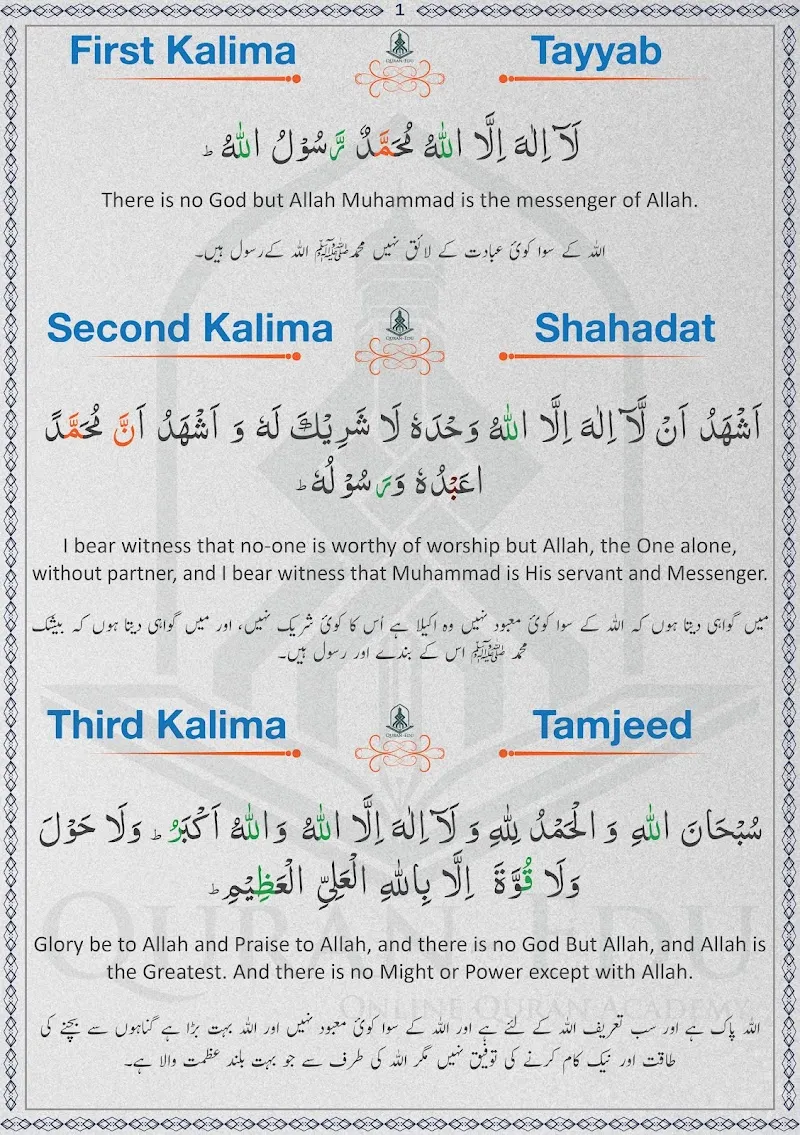 1
First Kalima
QURAN-EDU
Tayyab
لَآ اِلٰهَ اِلَّا اللهُ مُحَمَّدٌ رَّسُوْلُ اللهُ ؕ
There is no God but Allah Muhammad is the messenger of Allah.
اللہ کے سوا کوئ عبادت کے لائق نہیں محمدﷺ اللہ کےرسول ہیں۔
Second Kalima
QURAN-EDU
Shahadat
اَشْهَدُ اَنْ لَّآ اِلٰهَ اِلَّا اللهُ وَحْدَهٗ لَا شَرِيْكَ لَهٗ وَ اَشْهَدُ اَنَّ مُحَمَّدً
اعَبْدُهٗ وَرَسُوْلُهٗ ؕ
I bear witness that no-one is worthy of worship but Allah, the One alone,
without partner, and I bear witness that Muhammad is His servant and Messenger.
میں گواہی دیتا ہوں کہ اللہ کے سوا کوئ معبود نہیں وہ اکیلا ہے اُس کا کوئ شریک نہیں، اور میں گواہی دیتا ہوں کہ بیشک
محمد ﷺ اس کے بندے اور رسول ہیں۔
Third Kalima
QURAN-EDU
Tamjeed
سُبْحَانَ اللهِ وَ الْحَمْدُ لِلهِ وَ لَآ اِلٰهَ اِلَّا اللهُ وَاللهُ اَكْبَرُ ؕ وَلَا حَوْلَ
وَلَا قُوَّةَ اِلَّا بِاللهِ الْعَلِيِّ الْعَظِيْمِ ؕ
Glory be to Allah and Praise to Allah, and there is no God But Allah, and Allah is
the Greatest. And there is no Might or Power except with Allah.
اللہ پاک ہے اور سب تعریف اللہ کے لئے ہے اور اللہ کے سوا کوئ معبود نہیں اور اللہ بہت بڑا ہے گناہوں سے بچنے کی
طاقت اور نیک کام کرنے کی توفیق نہیں مگر اللہ کی طرف سے جو بہت بلند عظمت والا ہے۔
QURAN EDU
ONLINE QURAN ACADEMY